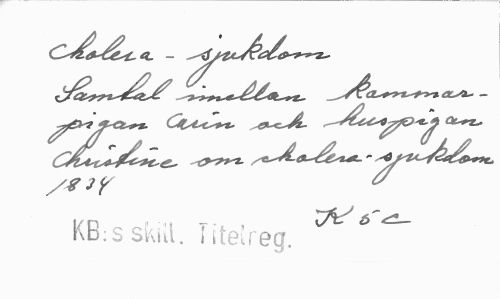 Cholera - sjukdom
Samtal imellan kammar-
pigan Carin och huspigan
Christine om cholera-sjukdom
1834
K 5 C
KB:s skill. Titelreg.